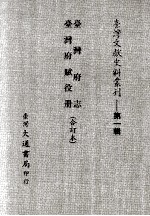 臺灣文獻史料叢刊——第一輯
臺灣府志
臺灣府賦役冊
(合訂本)
臺灣大通書局印行